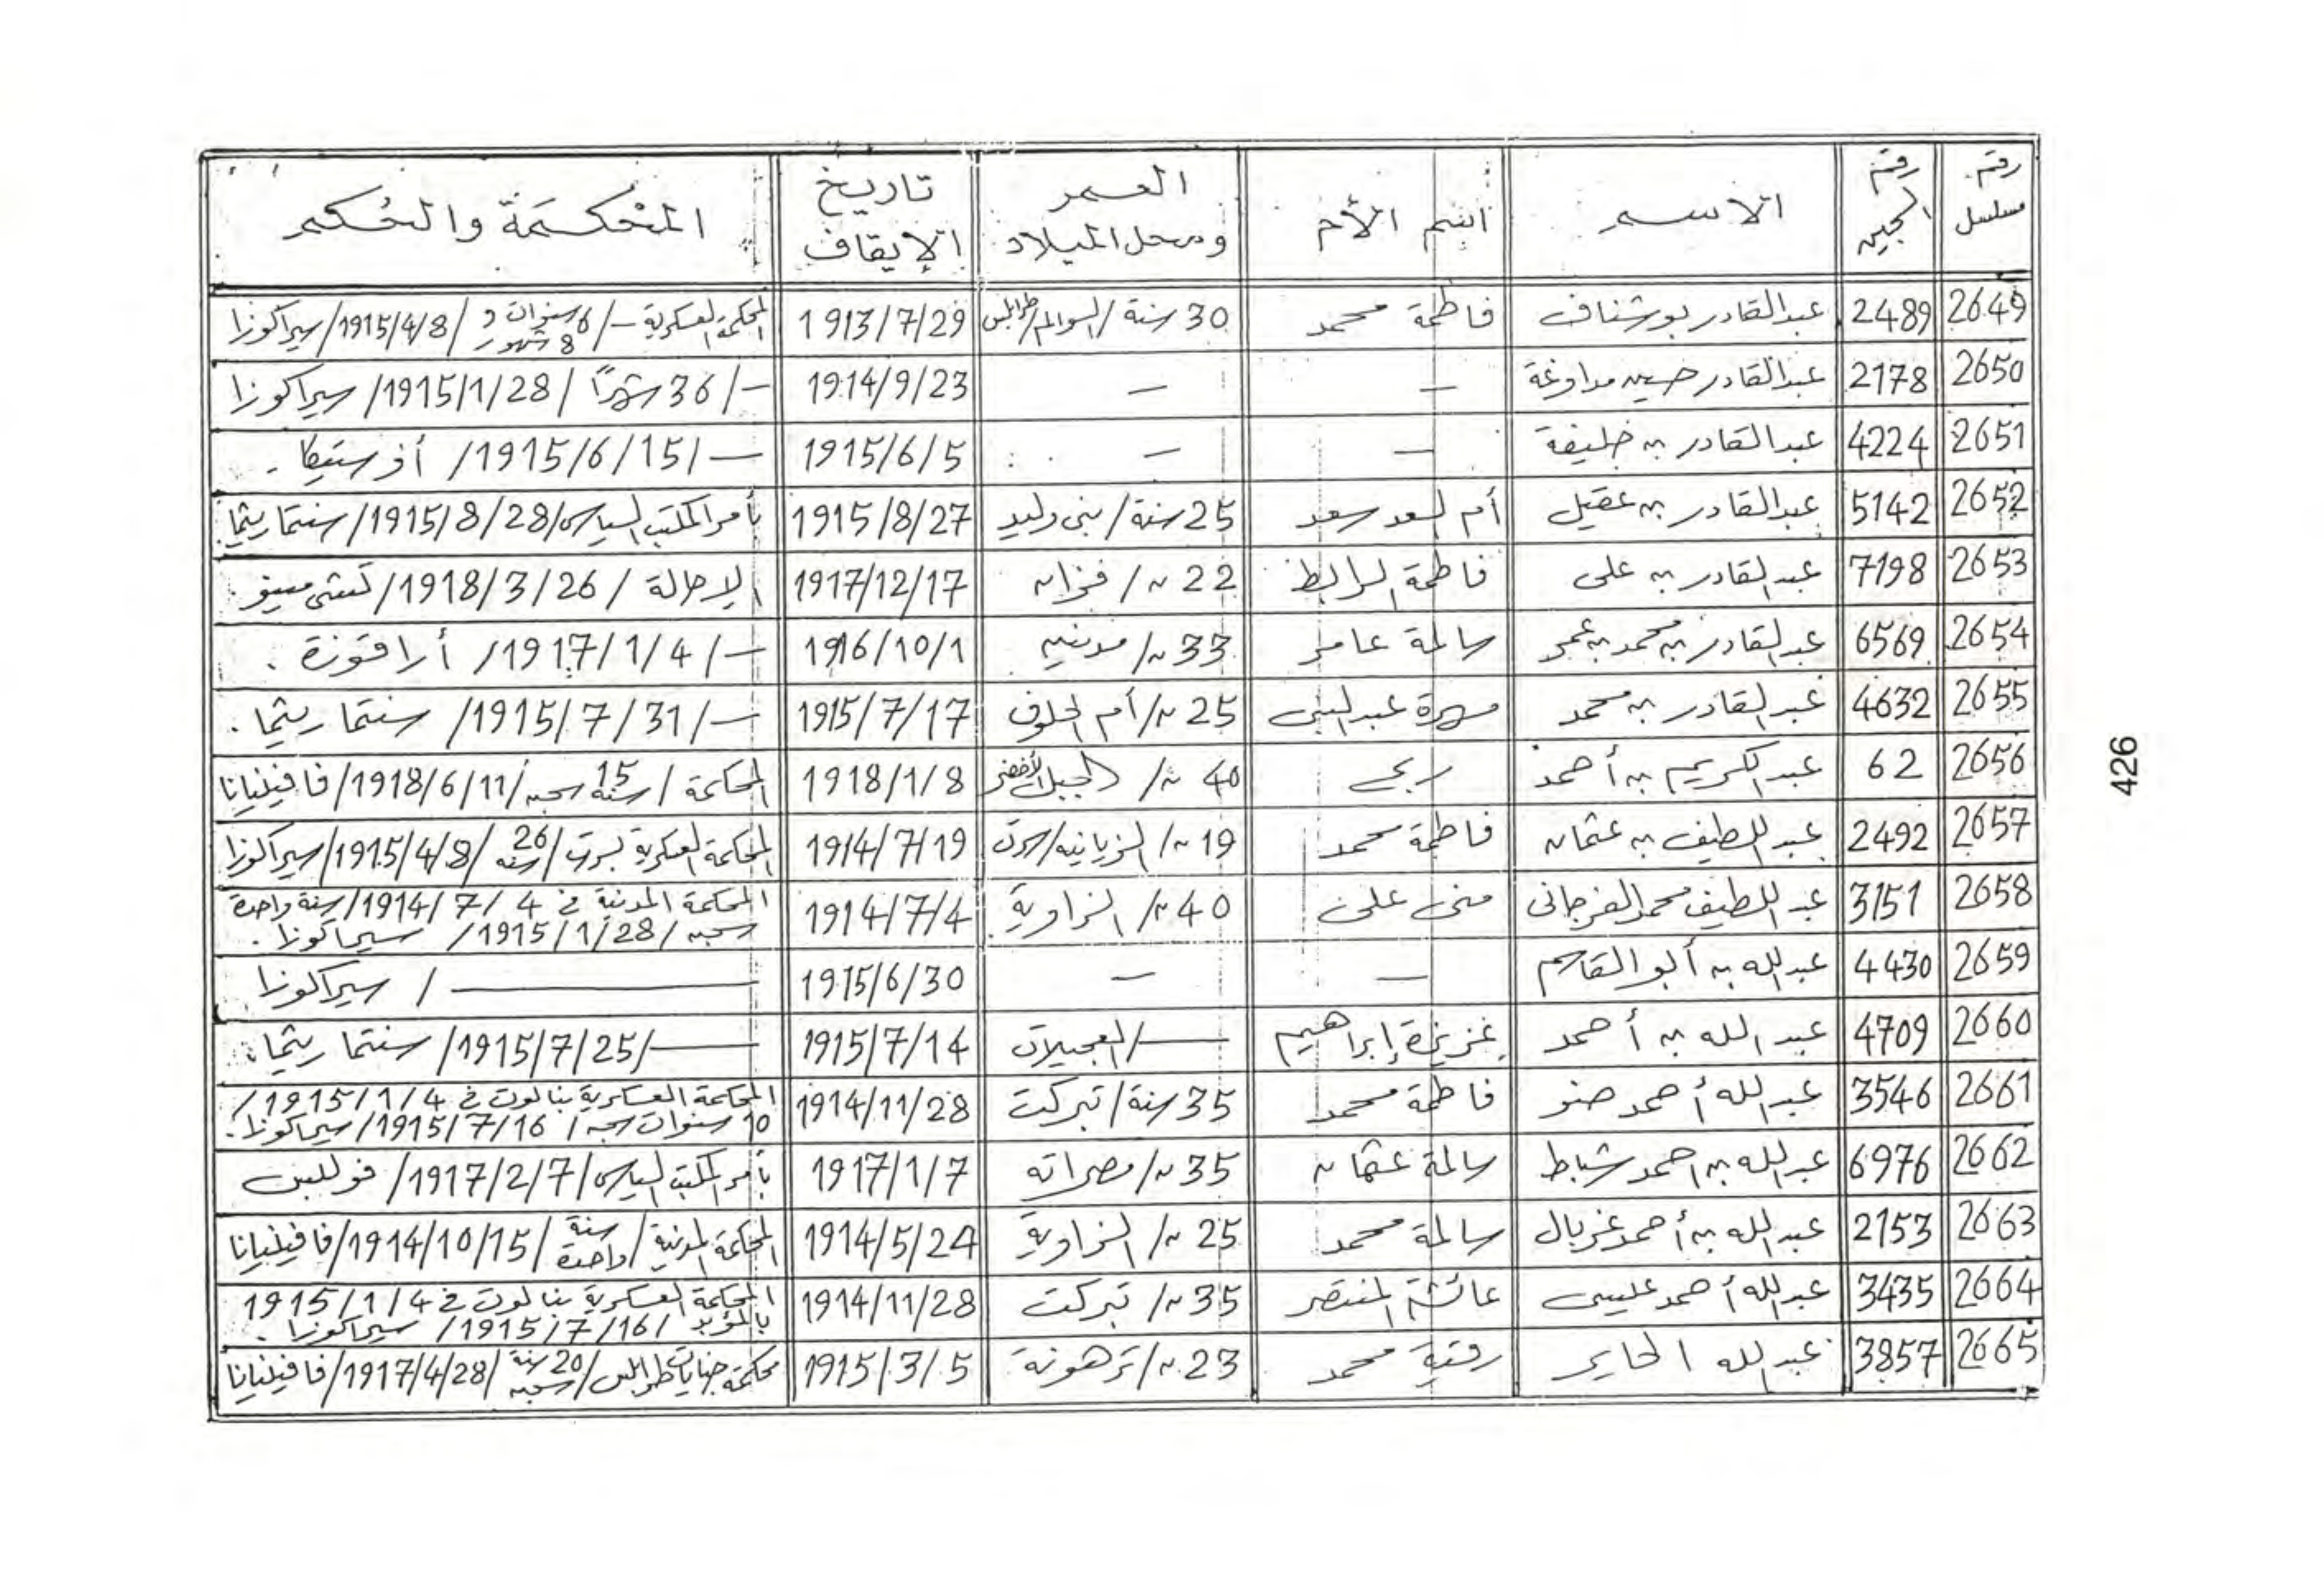 رقم مسلسل | رقم السجين | الاسم | اسم الأم | العمر ومحل الميلاد | تاريخ الإيقاف | المحكمة والحكم
2649 | 2489 | عبدالقادر بوشناف | فاطمة محمد | 30 سنة / السوالم / طرابلس | 1913/7/29 | المحكمة العسكرية / – / 6 سنوات و 8 شهور / 1915/4/8 / سيراكوزا
2650 | 2178 | عبدالقادر حسين مداوغة | – | – | 1914/9/23 | – / 36 شهراً / 1915/1/28 / سيراكوزا
2651 | 4224 | عبدالقادر بن خليفة | – | – | 1915/6/5 | – / 1915/6/15 / أوستيكا .
2652 | 5142 | عبدالقادر بن عقيل | أم السعد سعد | 25 سنة / بنى وليد | 1915/8/27 | بأمر المكتب السياسى / 1915/8/28 / سنتماريثما
2653 | 7198 | عبدالقادر بن على | فاطمة المرابط | 22 ~ / فزان | 1917/12/17 | الإحالة / 1918/3/26 /
2654 | 6569 | عبدالقادر بن محمد بن عمر | سالمة عامر | 33 ~ / مدنين | 1916/10/1 | – / 1917/1/4 / أراقوزة .
2655 | 4632 | عبدالقادر بن محمد | مهرة عبدالنبى | 25 ~ / أم الحلوف | 1915/7/17 | – / 1915/7/31 / سنتماريثما .
2656 | 62 | عبدالكريم بن أحمد | ربح | 40 ~ / الجبل الأخضر | 1918/1/8 | المحكمة / 15 سنة سجن / 1918/6/11 / فافينيانا
2657 | 2492 | عبداللطيف بن عثمان | فاطمة محمد | 19 ~ / الزيانيه / سرت | 1914/7/19 | المحكمة العسكرية بسرت / 26 سنة / 1915/4/8 / سيراكوزا
2658 | 3151 | عبداللطيف محمد الفرجانى | منى على | 40 ~ / الزاوية | 1914/7/4 | المحكمة المدنية في 1914/7/4 / سنة واحدة
سجن / 1915/1/28 / سيراكوزا .
2659 | 4430 | عبدالله بن أبو القاسم | – | – | 1915/6/30 | ــــــ / سيراكوزا
2660 | 4709 | عبد الله بن أحمد | عزيزة إبراهيم | ــــ / العجيلات | 1915/7/14 | ــــ / 1915/7/25 / سنتماريثما .
2661 | 3546 | عبدالله أحمد ضنو | فاطمة محمد | 35 سنة / تبركت | 1914/11/28 | المحكمة العسكرية بنالوت في 1915/1/4 /
10 سنوات سجن / 1915/7/16 / سيراكوزا .
2662 | 6976 | عبدالله بن احمد شباط | سالمة عثمان | 35 ~ / مصراته | 1917/1/7 | بأمر المكتب السياسى / 1917/2/7 /
2663 | 2153 | عبدالله بن أحمد غربال | سالمة محمد | 25 ~ / الزاوية | 1914/5/24 | المحكمة المدنية / سنة واحدة / 1914/10/15 / فافينيانا
2664 | 3435 | عبدالله أحمد عليسى | عائشة المنتصر | 35 ~ / تبركت | 1914/11/28 | المحكمة العسكرية بنالوت في 1915/1/4
بالمؤبد / 1915/7/16 / سيراكوزا .
2665 | 3857 | عبدالله الحاير | رقية محمد | 23 ~ / ترهونة | 1915/3/5 | محكمة جنايات طرابلس / 20 سنة سجن / 1917/4/28 / فافينيانا
426